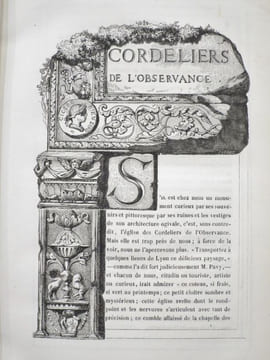 CORDELIERS
DE L'OBSERVANCE
S'IL est chez nous un monu-
ment curieux par ses souve-
nirs et pittoresque par ses ruines et les vestiges
de son architecture ogivale, c'est, sans contre-
dit, l'église des Cordeliers de l'Observance.
Mais elle est trop près de nous ; à force de la
voir, nous ne l'apercevons plus. « Transportez à
quelques lieues de Lyon ce délicieux paysage, »
— comme l'a dit fort judicieusement M. Pavy, —
et chacun de nous, citadin ou touriste, artiste
ou curieux, irait admirer « ce coteau, si frais,
si vert au printemps ; ce petit cloître sombre et
mystérieux ; cette église svelte dont le rond-
point et les nervures s'articulent avec tant de
précision ; ce comble affaissé de la chapelle des